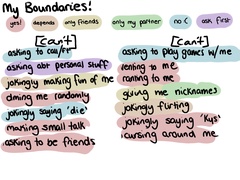 My Boundaries!
yes!
depends
only friends
only my partner
no :(
ask first
[can't]
asking to call/ft
asking abt personal stuff
jokingly making fun of me
dming me randomly
jokingly saying 'die'
making small talk
asking to be friends
[can't]
asking to play games w/me
venting to me
ranting to me
giving me nicknames
jokingly flirting
jokingly saying 'kys'
cursing around me